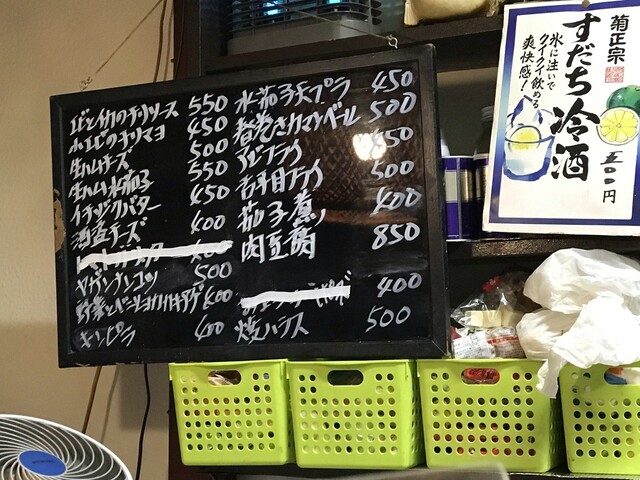 エビとイカのチリソース 550
小エビのチリマヨ 450
生ハムチーズ 500
生ハム水茄子 550
イチジクバター 450
酒盗チーズ 400
ヤゲンナンコツ 500
400
キンピラ 400
水茄子天プラ 450
春巻き カマンベール 500
アジフライ 650
舌平目フライ 500
茄子煮 400
肉豆腐 850
400
焼ハラス 500
菊正宗
すだち冷酒
氷に注いで
クイクイ飲める
爽快感!
五〇〇円